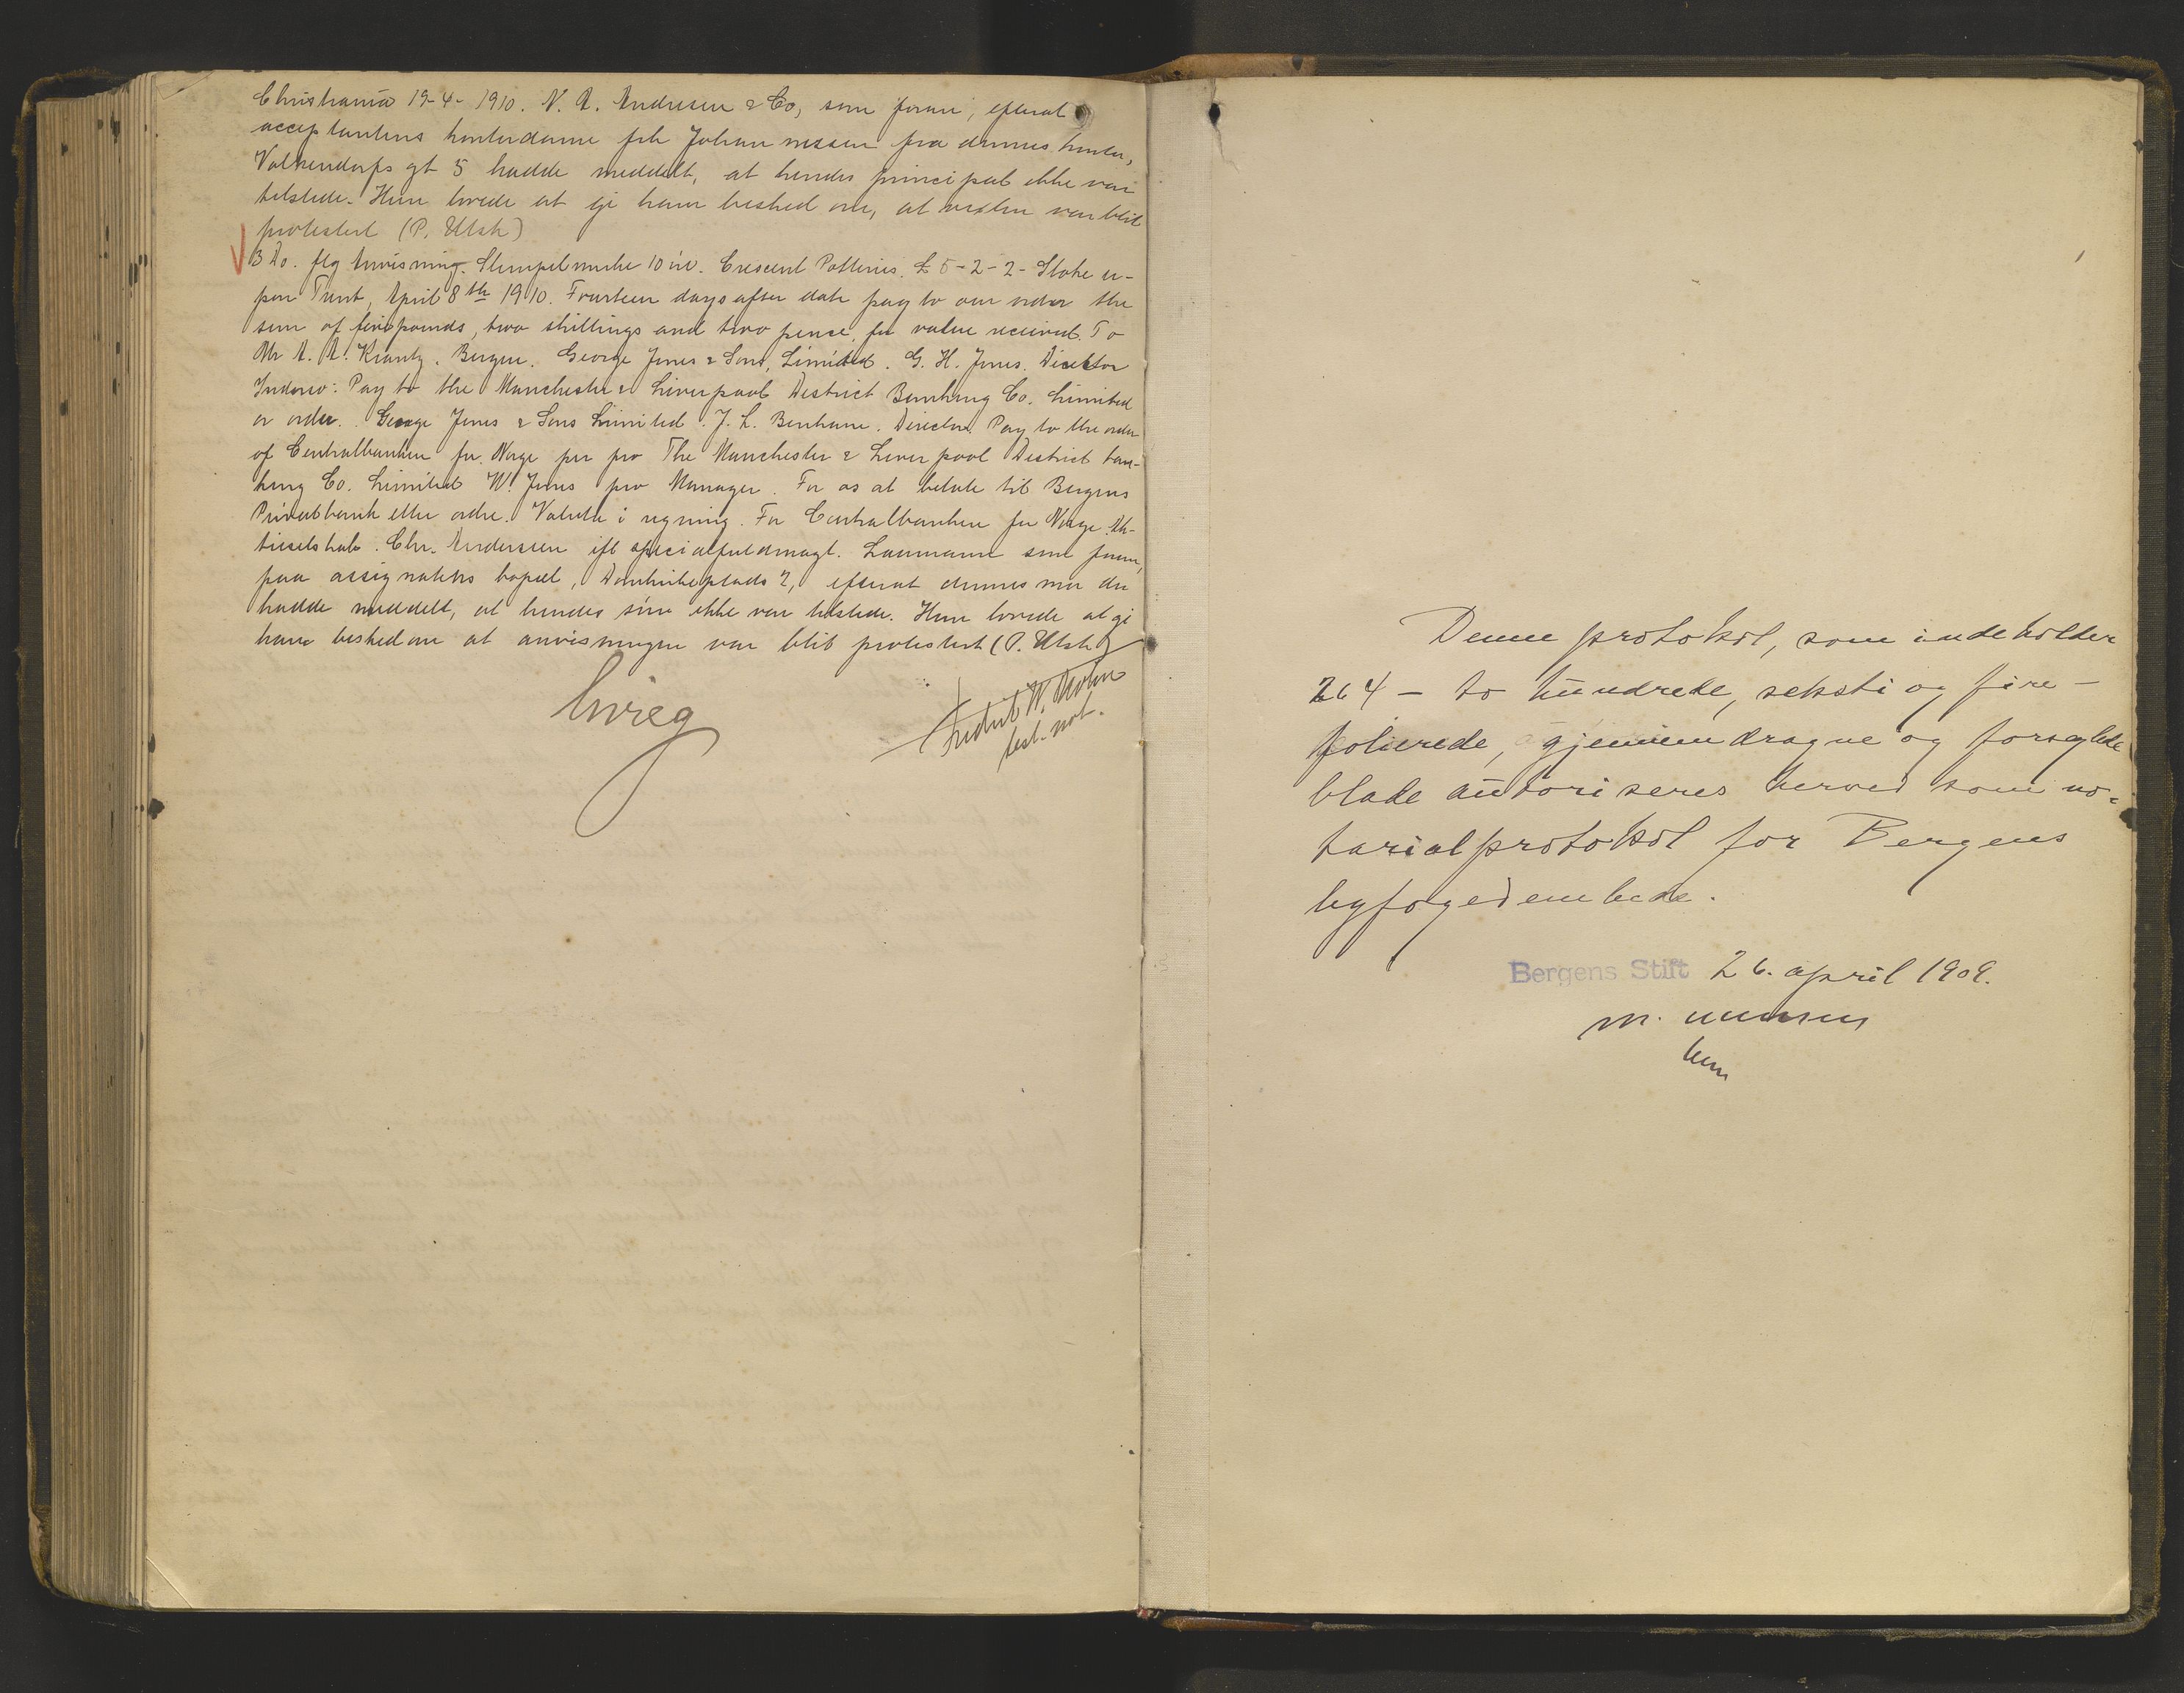 Christiania 19-4-1910. N. A. Andresen & Co, som foran, efterat
acceptantens kontordame frk Johannessen fra dennes kontor,
Valkendorfs gt 5 hadde meddelt, at hendes principal ikke var
tilstede. Hun lovede at gi ham besked om, at vexlen var blit
protestert (P. Utsk)
3 Do. flg Anvisning. Stempelmerke 10 øre. Crescent Potteries. £ 5-2-2- Stoke u-
pon Trent, April 8th 1910. Fourteen days after date pay to our order the
sum of five pounds, two shillings and two pence, for value received. To
Mr A. A. Krantz. Bergen. George Jones & Sons, Limited. G. H. Jones. Direktor
Indorso: Pay to the Manchester & Liverpool District Banking Co. Limited
or order. George Jones & Sons Limited. J. L. Benham. Director. Pay to the order
of Centralbanken for Norge per pro The Manchester & Liverpool District ban-
king Co. Limited W. Jones pro Manager. For os at betale til Bergens
Privatbank eller ordre. Valuta i regning. For Centralbanken for Norge Ak-
tieselskab. Chr. Anderssen ifl specialfuldmagt. Laumann som foran,
paa assignatens bopæl, Domkirkeplads 2, efterat dennes mor der
hadde meddelt, at hendes søn ikke var tilstede. Hun lovede at gi
ham besked om at anvisningen var blit protestert (P. Utsk)
Fredrik W. Mohn
best. not.
Denne protokol, som indeholder
264 – to hundrede, seksti og fire –
folierede, gjennemdragne og forseglede
blade autoriseres herved som no=
tarialprotokol for Bergens
byfogedembede.
Bergens Stift 26. april 1909.